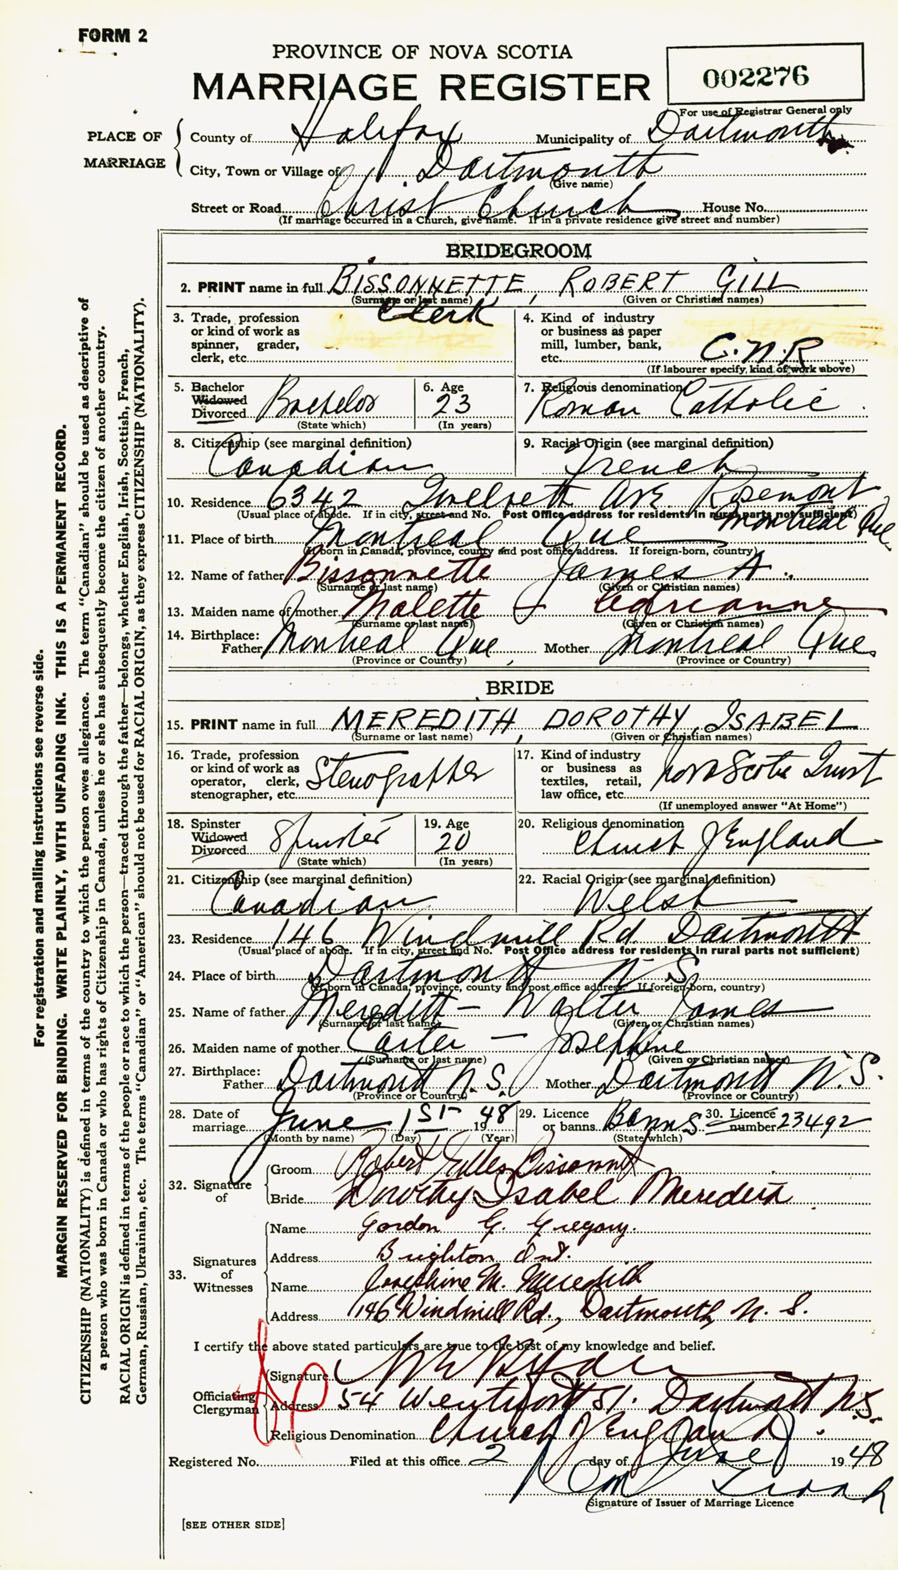 FORM 2
PROVINCE OF NOVA SCOTIA
MARRIAGE REGISTER
002276
For use of Registrar General only
PLACE OF MARRIAGE
County of Halifax Municipality of Dartmouth
City, Town or Village of Dartmouth
(Give name)
Street or Road Christ Church House No.
(If marriage occurred in a Church, give name. If in a private residence give street and number)
BRIDEGROOM
2. PRINT name in full BISSONNETTE, ROBERT GILL
(Surname or last name) (Given or Christian names)
3. Trade, profession or kind of work as spinner, grader, clerk, etc. Clerk
4. Kind of industry or business as paper mill, lumber, bank, etc. C.N.R
(If labourer specify, kind of work above)
5. Bachelor Widowed Divorced Bachelor
(State which)
6. Age 23
(In years)
7. Religious denomination Roman Catholic.
8. Citizenship (see marginal definition) Canadian
9. Racial Origin (see marginal definition) French
10. Residence 6342 Twelveth Ave Rosemont Montreal Que.
(Usual place of abode. If in city, street and No. Post Office address for residents in rural parts not sufficient)
11. Place of birth Montreal Que
(If born in Canada, province, county and post office address. If foreign-born, country)
12. Name of father Bissonnette James A.
(Surname or last name) (Given or Christian names)
13. Maiden name of mother Malette -
(Surname or last name) (Given or Christian names)
14. Birthplace: Father Montreal Que, Mother Montreal Que.
(Province or Country) (Province or Country)
BRIDE
15. PRINT name in full MEREDITH, DOROTHY, ISABEL
(Surname or last name) (Given or Christian names)
16. Trade, profession or kind of work as operator, clerk, stenographer, etc. Stenographer
17. Kind of industry or business as textiles, retail, law office, etc. Nova Scotia Trust
(If unemployed answer "At Home")
18. Spinster Widowed Divorced Spinster
(State which)
19. Age 20
(In years)
20. Religious denomination Church of England
21. Citizenship (see marginal definition) Canadian
22. Racial Origin (see marginal definition) Welsh
23. Residence 146 Windmill Rd. Dartmouth
(Usual place of abode. If in city, street and No. Post Office address for residents in rural parts not sufficient)
24. Place of birth Dartmouth N.S.
(If born in Canada, province, county and post office address. If foreign-born, country)
25. Name of father Meredith - Walter James
(Surname or last name) (Given or Christian names)
26. Maiden name of mother Carter - Josephine
(Surname or last name) (Given or Christian names)
27. Birthplace: Father Dartmouth N.S. Mother Dartmouth N.S.
(Province or Country) (Province or Country)
28. Date of marriage June 1st 1948
(Month by name) (Day) (Year)
29. Licence or banns Banns
(State which)
30. Licence number 23492
32. Signature of
Groom Robert Bissonnette
Bride Dorothy Isabel Meredith
33. Signatures of Witnesses
Name Gordon G. Gregory.
Address Brighton Ont.
Name Josephine M. Meredith
Address 146 Windmill Rd., Dartmouth, N. S.
I certify the above stated particulars are true to the best of my knowledge and belief.
Officiating Clergyman
Signature
Address 54 Wentworth St. Dartmouth N.S.
Religious Denomination Church of England.
Registered No. Filed at this office 2 day of June 1948
Signature of Issuer of Marriage Licence
[SEE OTHER SIDE]
For registration and mailing instructions see reverse side.
MARGIN RESERVED FOR BINDING. WRITE PLAINLY, WITH UNFADING INK. THIS IS A PERMANENT RECORD.
CITIZENSHIP (NATIONALITY) is defined in terms of the country to which the person owes allegiance. The term "Canadian" should be used as descriptive of
a person who was born in Canada or who has rights of Citizenship in Canada, unless he or she has subsequently become the citizen of another country.
RACIAL ORIGIN is defined in terms of the people or race to which the person—traced through the father—belongs, whether English, Irish, Scottish, French,
German, Russian, Ukrainian, etc. The terms "Canadian" or "American" should not be used for RACIAL ORIGIN, as they express CITIZENSHIP (NATIONALITY).